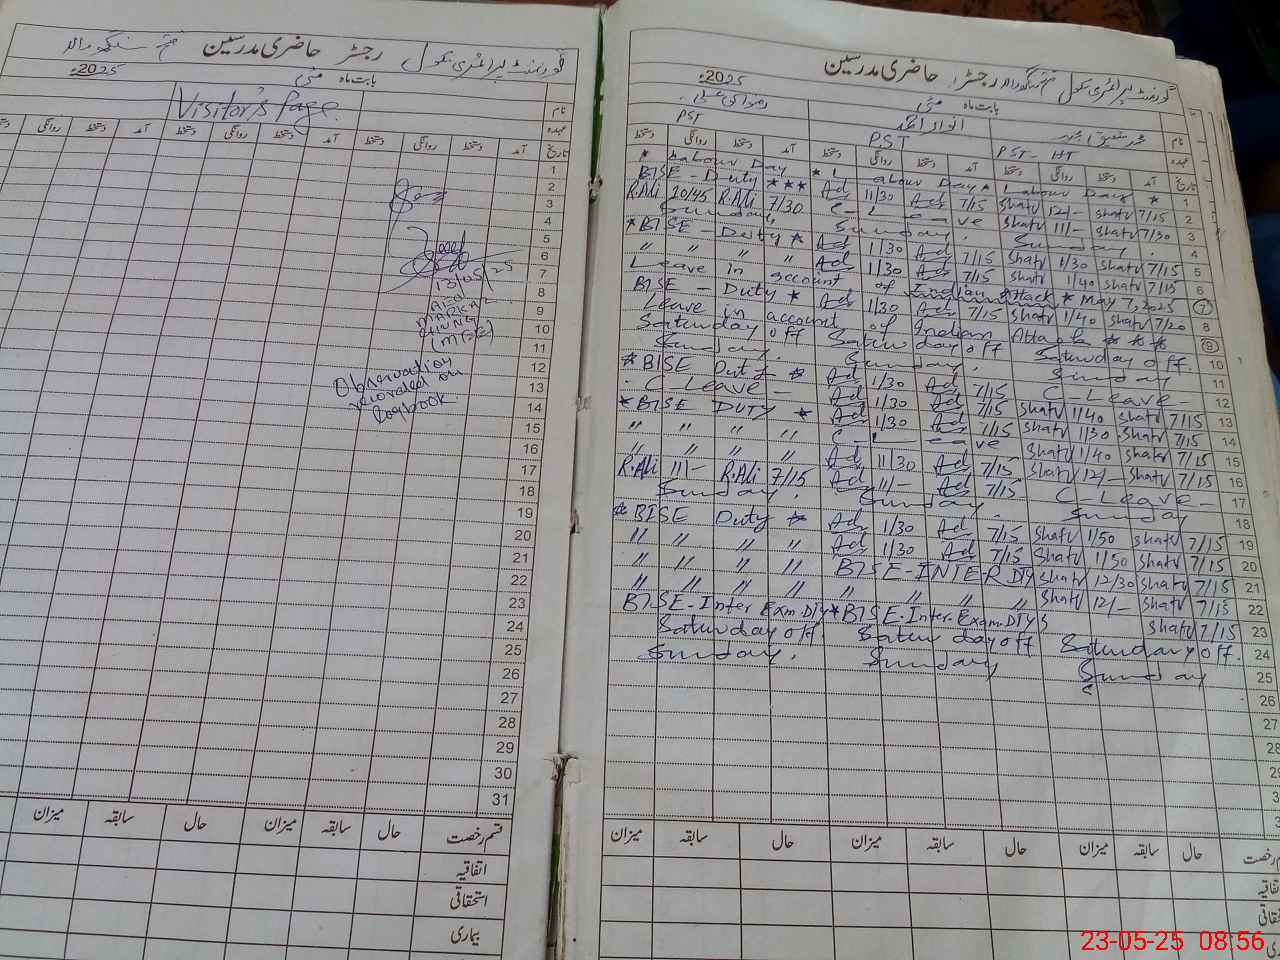 گورنمنٹ پرائمری سکول رجسٹر حاضری مدرسین
بابت ماہ مئی 2025ء
نام Visitor's Page.
عہدہ
تاریخ آمد دستخط روانگی دستخط آمد دستخط روانگی دستخط آمد
1
2
3
4
5
6
7 13/05/25
8 AEO
9 MARKAZ
10
11
12 Observation
13 recorded on
14 Logbook
15
16
17
18
19
20
21
22
23
24
25
26
27
28
29
30
31
قسم رخصت حال سابقہ میزان حال سابقہ میزان
اتفاقیہ
استحقاقی
بیماری
گورنمنٹ پرائمری سکول رجسٹر حاضری مدرسین
بابت ماہ مئی 2025ء
نام
عہدہ PST - HT PST PST
تاریخ آمد دستخط روانگی دستخط آمد دستخط روانگی دستخط آمد دستخط روانگی دستخط
* Labour Day * Labour Day * Labour Day * 1
BISE - Duty *** Ad 11/30 Ad 7/15 Shafv 12/- Shafv 7/15 2
R.Ali 10/45 R.Ali 7/30 C - Leave Shafv 11/- Shafv 7/30 3
Sunday. Sunday. Sunday. 4
* BISE - Duty * Ad 1/30 Ad 7/15 Shafv 1/30 Shafv 7/15 5
" " " " Ad 1/30 Ad 7/15 Shafv 1/40 Shafv 7/15 6
Leave in account of Indian Attack * May 7, 2025 7
BISE - Duty * Ad 1/30 Ad 7/15 Shafv 1/40 Shafv 7/20 8
Leave in account of Indian Attack * * * 9
Saturday off Saturday off Saturday off. 10
Sunday. Sunday. Sunday 11
* BISE Duty * Ad 1/30 Ad 7/15 C - Leave - 12
- C Leave - Ad 1/30 Ad 7/15 Shafv 1/40 Shafv 7/15 13
* BISE DUTY * Ad 1/30 Ad 7/15 Shafv 1/30 Shafv 7/15 14
" " " " C - Leave Shafv 1/40 Shafv 7/15 15
" " " " Ad 11/30 Ad 7/15 Shafv 12/- Shafv 7/15 16
R.Ali 11/- R.Ali 7/15 Ad 11/- Ad 7/15 C - Leave - 17
Sunday. Sunday. Sunday 18
* BISE Duty * Ad 1/30 Ad 7/15 Shafv 1/50 Shafv 7/15 19
" " " " Ad 1/30 Ad 7/15 Shafv 1/50 Shafv 7/15 20
" " " " BISE-INTER DTY Shafv 12/30 Shafv 7/15 21
" " " " " " " " Shafv 12/- Shafv 7/15 22
BISE-Inter Exam.DTY * BISE-Inter-Exam.DTYS Shafv 7/15 23
Saturday off Saturday off Saturday off. 24
Sunday. Sunday Sunday 25
26
27
28
قسم رخصت حال سابقہ میزان حال سابقہ میزان حال سابقہ میزان
23-05-25 08:56